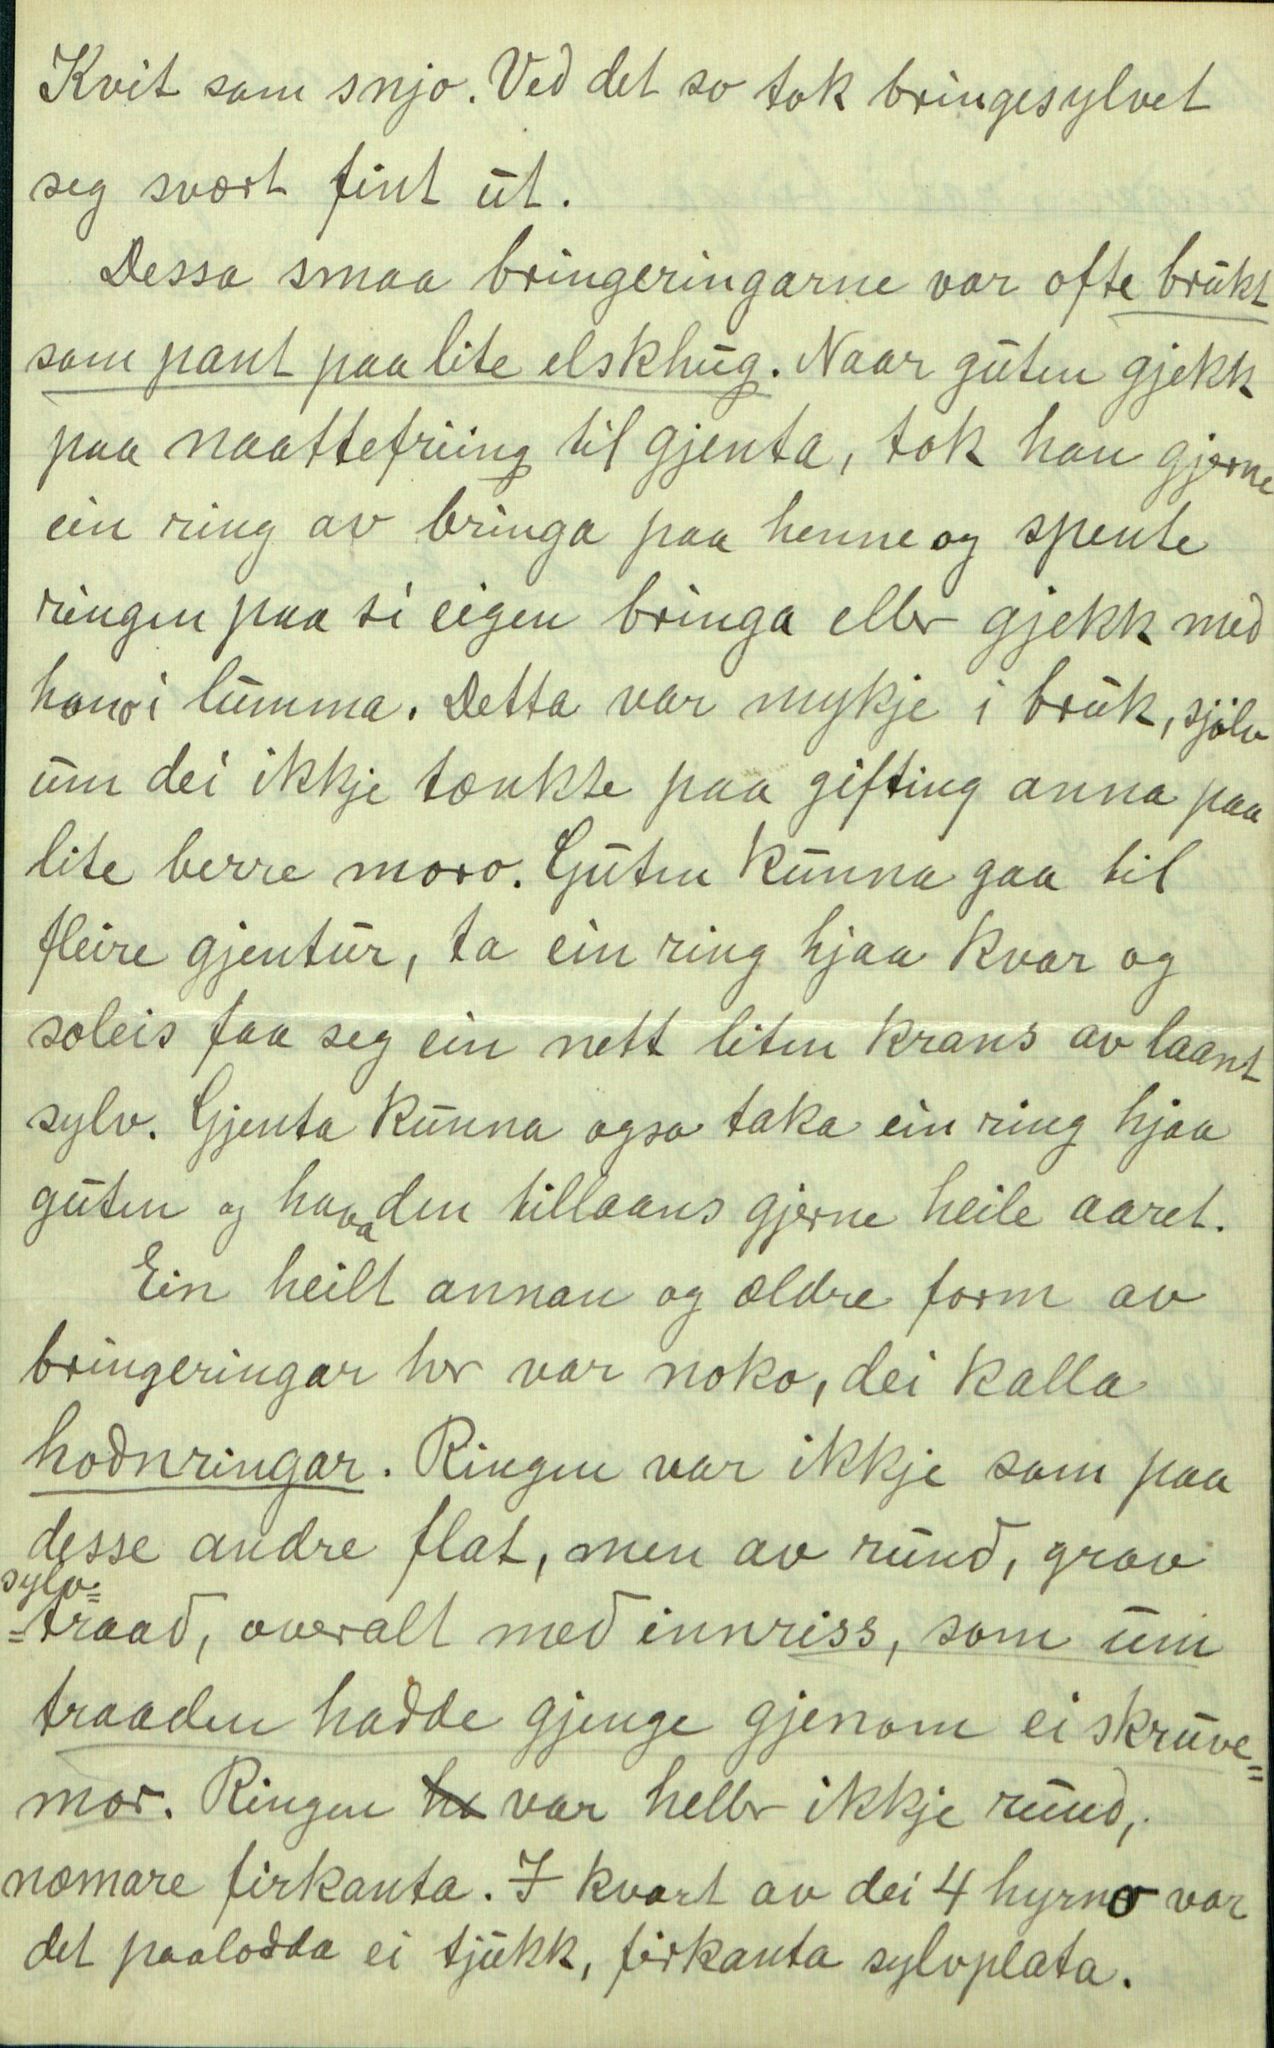 Kvit som snjo. Ved det so tok bringesylvet
seg svært fint ut.
Dessa smaa bringeringarne var ofte brukt
som pant paa lite elskhug. Naar guten gjekk
paa naattefriing til gjenta, tok han gjerne
ein ring av bringa paa henne og spente
ringen paa si eigen bringa eller gjekk med
hono i lumma. Detta var mykje i bruk, sjølv
um dei ikkje tænkte paa gifting anna paa
lite berre moro. Guten kunna gaa til
fleire gjentur, ta ein ring hjaa kvar og
soleis faa seg ein nett liten krans av laant
sylv. Gjenta kunna ogso taka ein ring hjaa
guten og hava den tillaans gjerne heile aaret.
Ein heilt annan og ældre form av
bringeringar her var noko, dei kalla
hodnringar. Ringen var ikkje som paa
desse andre flat, men av rund, grov
sylv=
=traad, overalt med innriss, som um
traaden hadde gjenge gjenom ei skruve=
mor. Ringen ha var heller ikkje rund,
næmare firkanta. I kvart av dei 4 hyrno var
det paalodda ei tjukk, firkanta sylvplata.